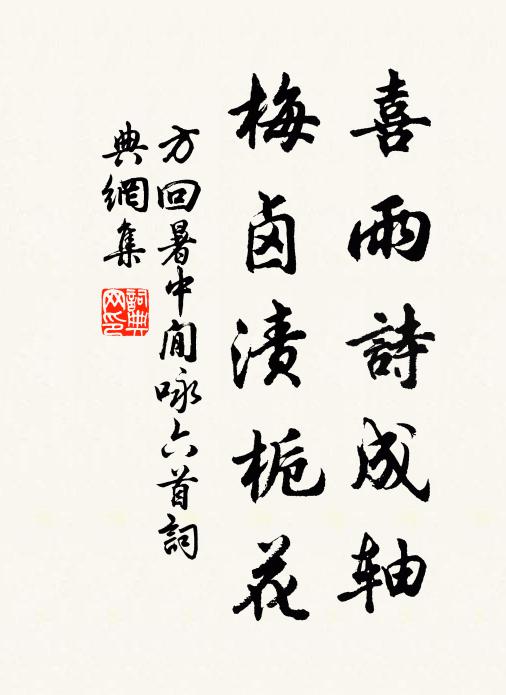 喜雨詩成軸
梅鹵漬梔花
方回暑中閒咏六首詞
典網集
詞典网印